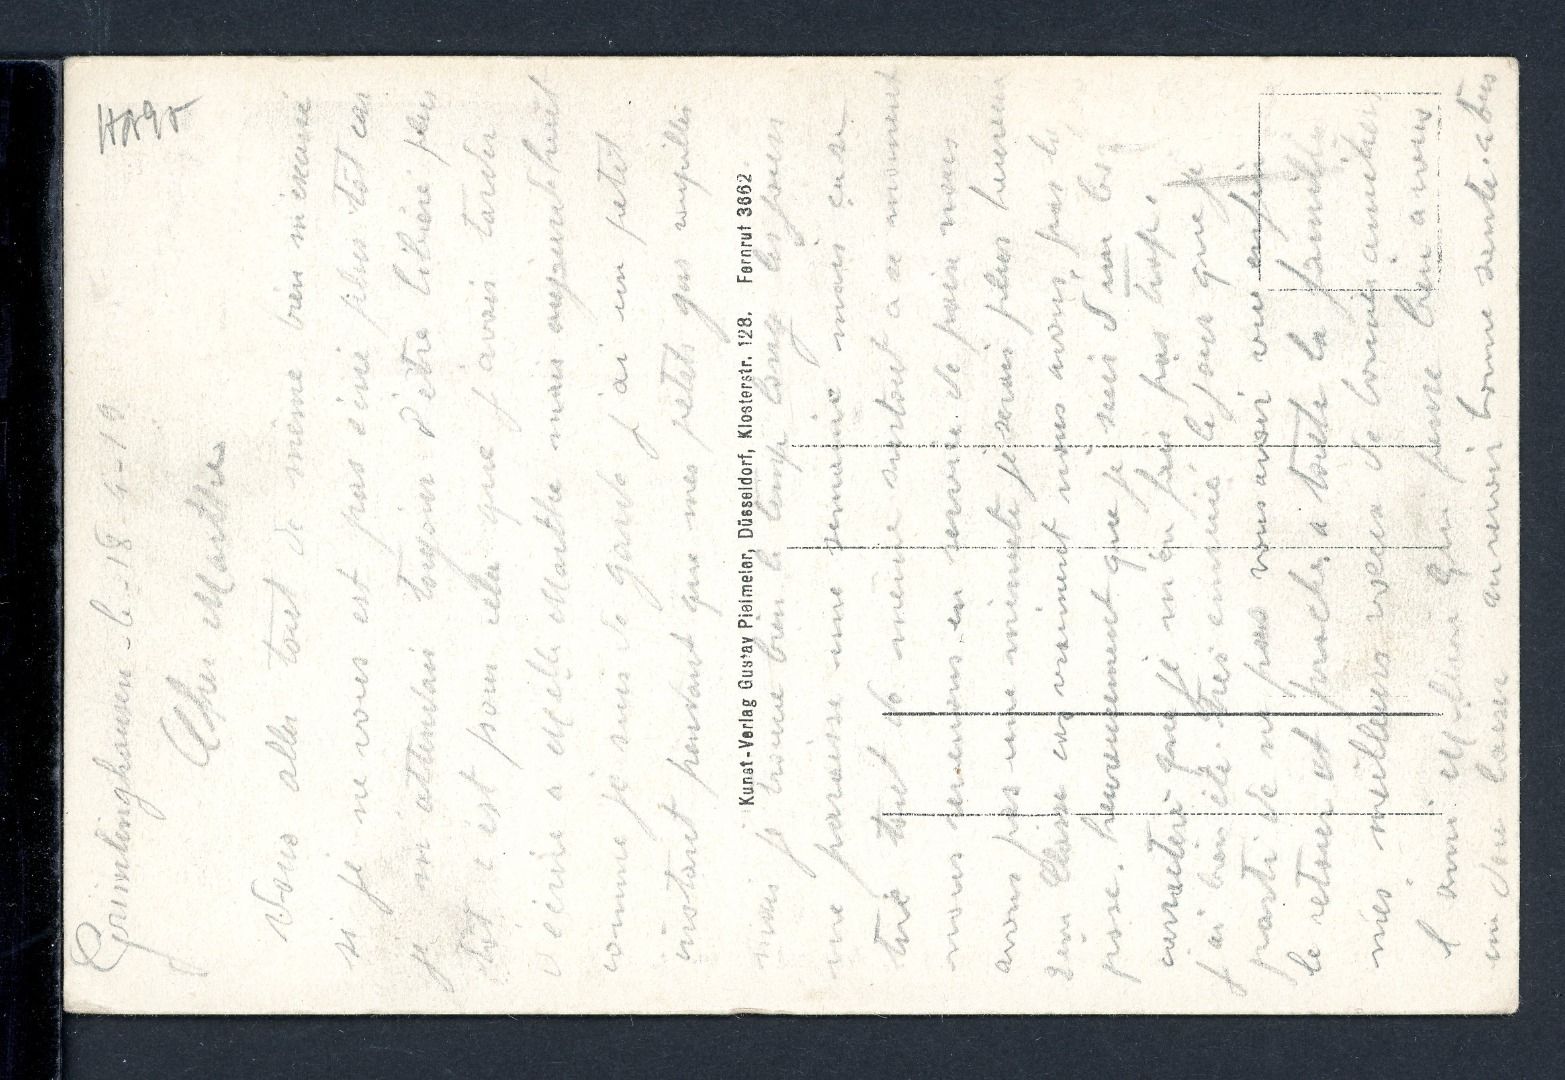 Grimlinghausen le 18-4-19
Chère Marthe
Vous aller tout de même bien m'excusé
si je ne vous est pas écrit plus tôt car
je m'attendais toujour d'être libéré plus
tôt c'est pour cela que j'avais tarder
d'écrire a Melle Marthe mais aujourd'huit
comme je suis de garde j'ai un petit
instant pendant que mes petits gas
mais je trouve bien le temp long les jours
me paraisse une semaine mais ça va
tout de même surtout a ce moment
nous sommes en service de jour nous
avons pas une minute je serais plus heureux
2ém Classe car vraiment nous avons pas le
pose. heureusement que je suis d'un bon
caractère que je m'en fais pas trop.
j'ai bien été très ennuié le jour que je
parti de ne pas vous avoir vue enfin
le retour et proche a toute la famille
mes meilleurs voeux de bonnes amitiers
l'ami qui pense bien a vous
un dou baiser au revoir bonne santé
Kunst-Verlag Gustav Pielmeier, Düsseldorf, Klosterstr. 128. Fernruf 3662